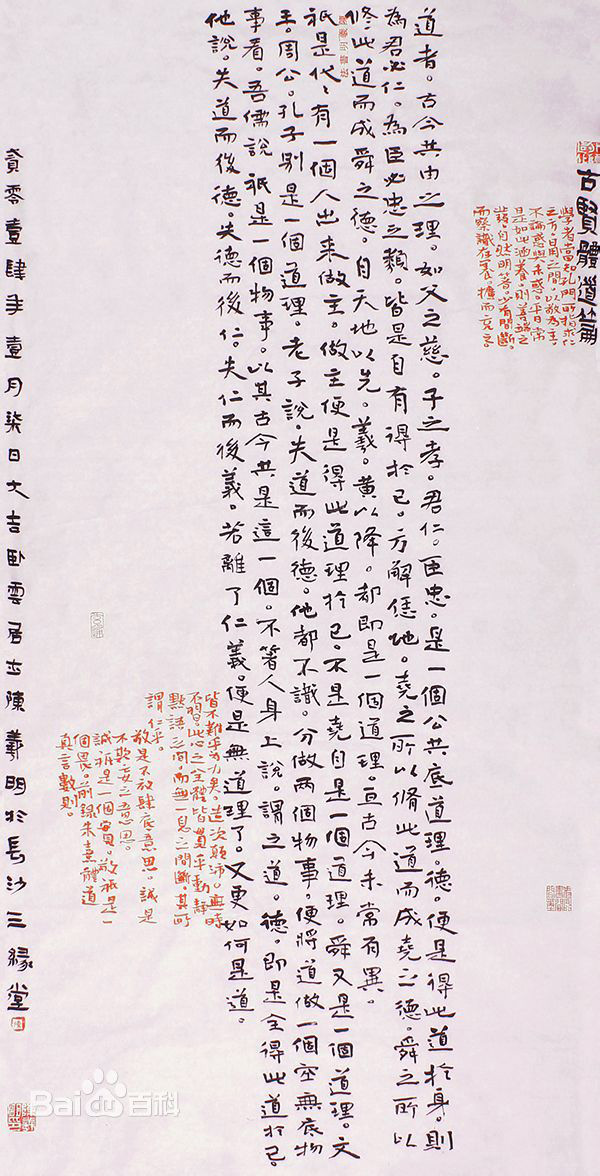 古賢體道篇
學者當知孔門所指求仁
之方日用之間以敬為主。
不論感與未感。平日常
是如此涵養。則善端之
發。自然明著。少有間斷。
而察識存養擴而充之。
道者。古今共由之理。如父之慈。子之孝。君仁。臣忠。是一個公共底道理。德。便是得此道於身。則
為君必仁。為臣必忠之類。皆是自有得於己。方解恁地。堯之所以脩此道而成堯之德。舜之所以
脩此道而成舜之德。自天地以先。羲。黃以降。都即是一個道理。亘古今未常有異。
祇是代、有一個人出來做主。做主便是得此道理於己。不是堯自是一個道理。舜又是一個道理。文
王。周公。孔子別是一個道理。老子說。失道而後德。他都不識。分做兩個物事。便將道做一個空無底物
事看。吾儒說祇是一個物事。以其古今共是這一個。不著人身上說。謂之道。德。即是全得此道於己。
他說。失道而後德。失德而後仁。失仁而後義。若離了仁義。便是無道理了。又更如何是道。
皆不難乎為力矣。造次顛沛。無時
不習。此心之全體皆貫乎動靜
語之間。而無一息之間斷。其所
謂仁乎。
敬是不放肆底意思。誠是
不欺妄之意思。
誠祇是一個實。敬祇是一
個畏。前錄朱熹體道
真言數則。
貳零壹肆年壹月柒日大吉臥雲居士陳羲明於長沙三緣堂
Bai百科